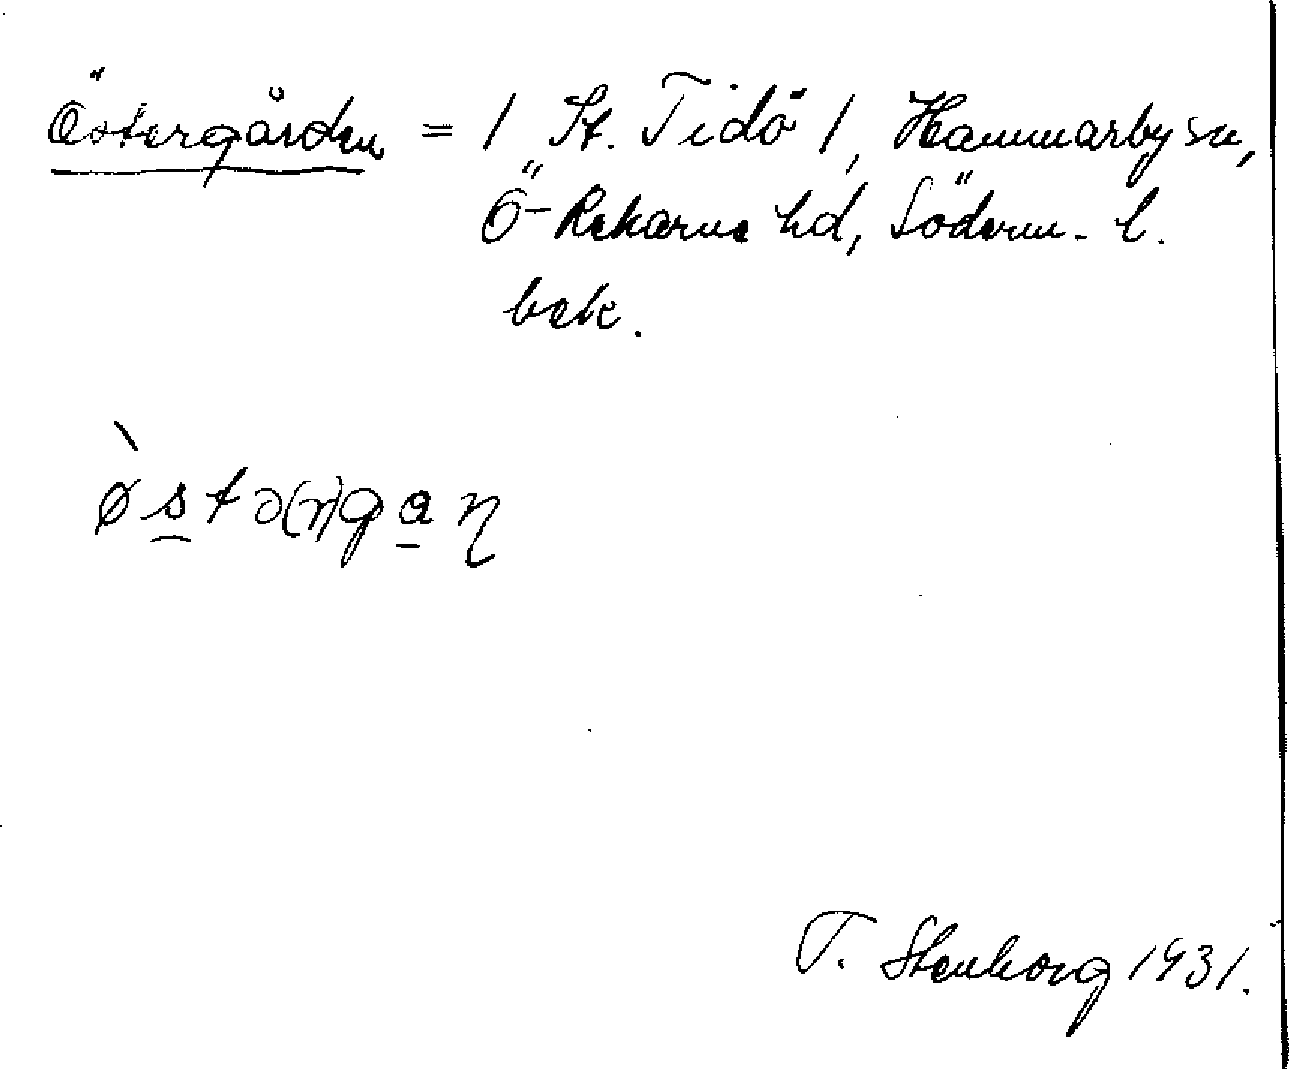 Östergården = / St. Tidö /, Hammarby sn,
Ö-Rekarne hd, Söderm. l.
bek.
T. Stenborg 1931.